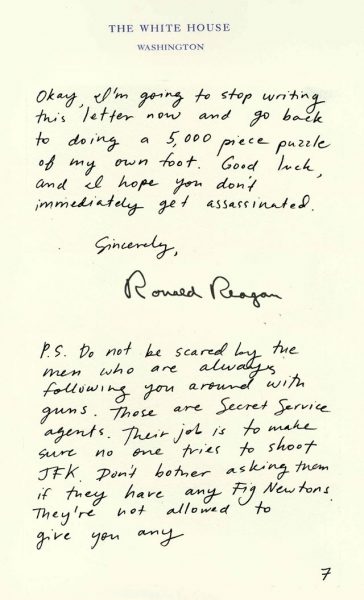 THE WHITE HOUSE
WASHINGTON
Okay, I'm going to stop writing
this letter now and go back
to doing a 5,000 piece puzzle
of my own foot. Good luck,
and I hope you don't
immediately get assassinated.
Sincerely,
Ronald Reagan
P.S. Do not be scared by the
men who are always
following you around with
guns. Those are Secret Service
agents. Their job is to make
sure no one tries to shoot
JFK. Don't bother asking them
if they have any Fig Newtons.
They're not allowed to
give you any
7